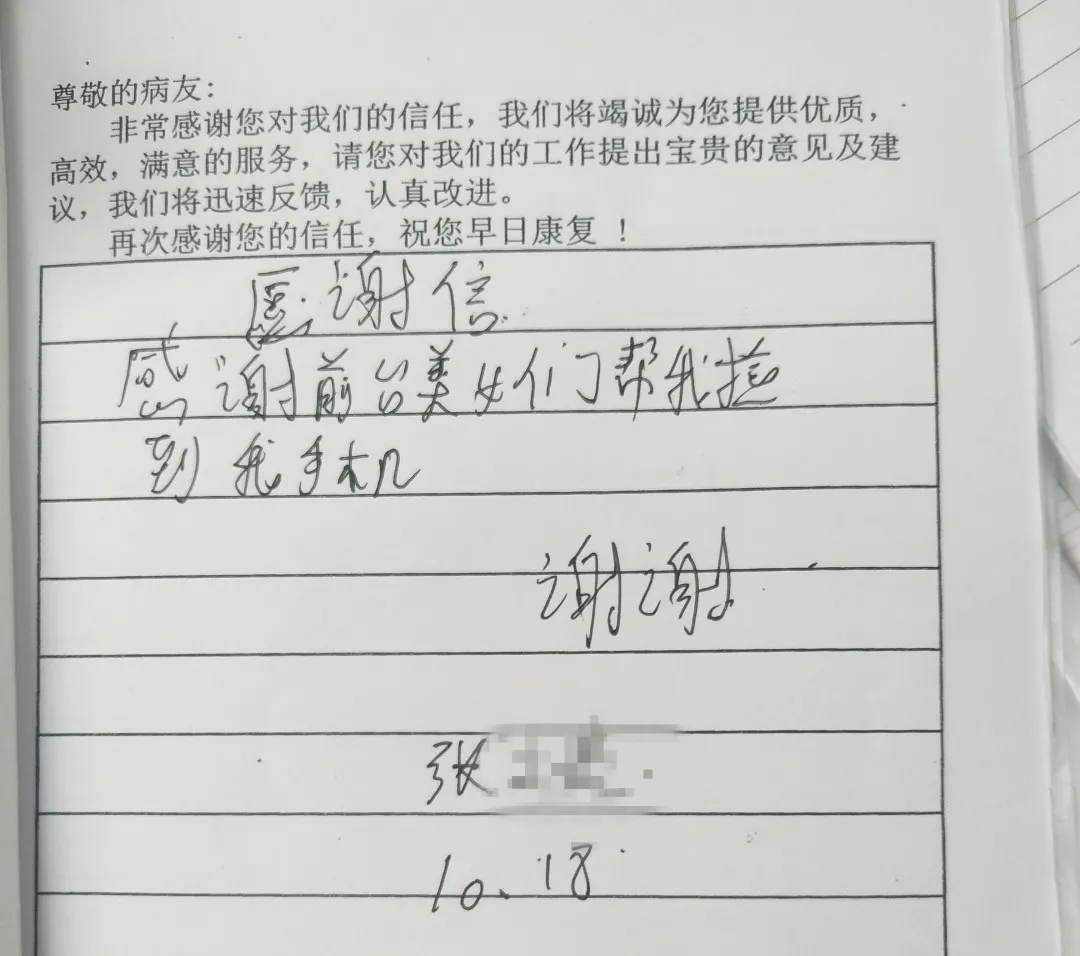 尊敬的病友:
非常感谢您对我们的信任，我们将竭诚为您提供优质，
高效，满意的服务，请您对我们的工作提出宝贵的意见及建
议，我们将迅速反馈，认真改进。
再次感谢您的信任，祝您早日康复！
感谢信
感谢前台美女们帮我捡
到我手机
谢谢
张
10.18